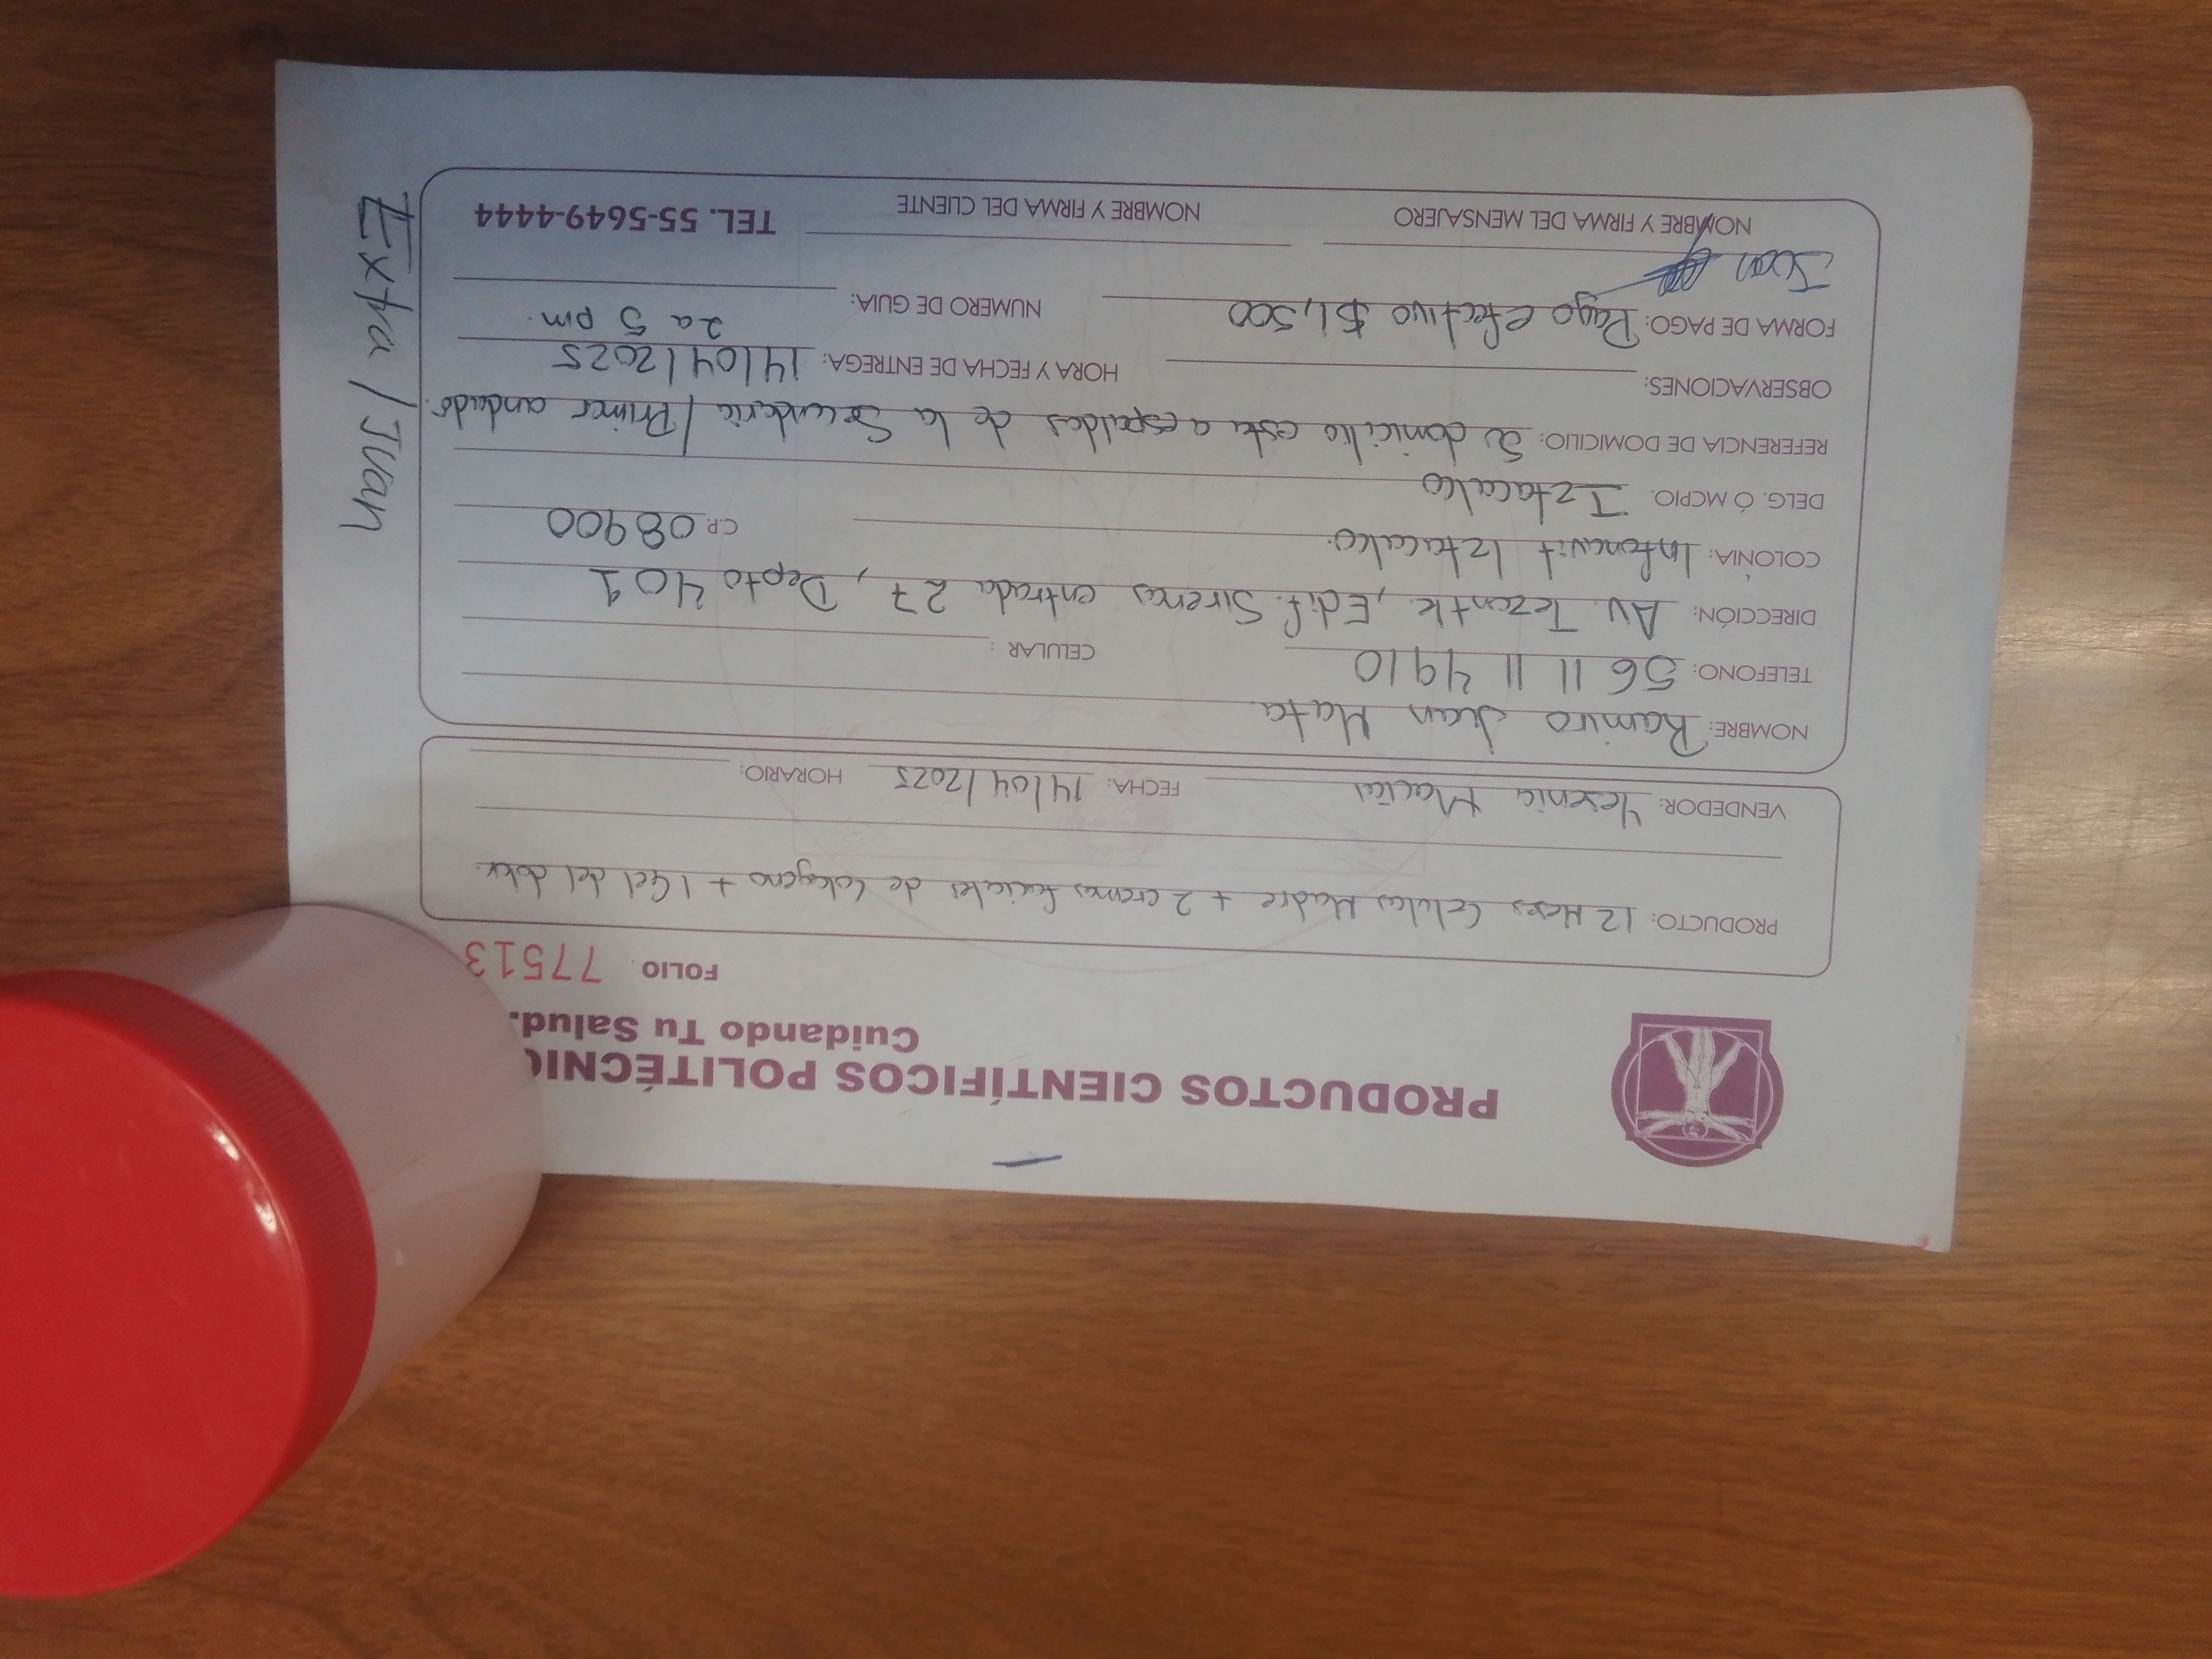 PRODUCTOS CIENTÍFICOS POLITÉCNIC
Cuidando Tu Salud.
FOLIO 77513
PRODUCTO: 12 Meses Celulas Madre + 2 cremas faciales de Colageno + 1 Gel del dolor.
VENDEDOR: Yesenia Macias FECHA: 14/04/2025 HORARIO:
NOMBRE: Ramiro Jean Mata
TELEFONO: 56 11 11 4910 CELULAR :
DIRECCIÓN: Av. Tezontle, Edif. Sirenas entrada 27, Depto 401
COLONIA: Infonavit Iztacalco. C.P. 08900
DELG. Ó MCPIO. Iztacalco
REFERENCIA DE DOMICILIO: Su domicilio esta a espaldas de la Secundaria / Primer andador.
OBSERVACIONES: HORA Y FECHA DE ENTREGA: 14/04/2025
2 a 5 pm.
FORMA DE PAGO: Pago efectivo $1,500 NUMERO DE GUIA:
Juan
NOMBRE Y FIRMA DEL MENSAJERO NOMBRE Y FIRMA DEL CLIENTE TEL. 55-5649-4444
Extra / Juan